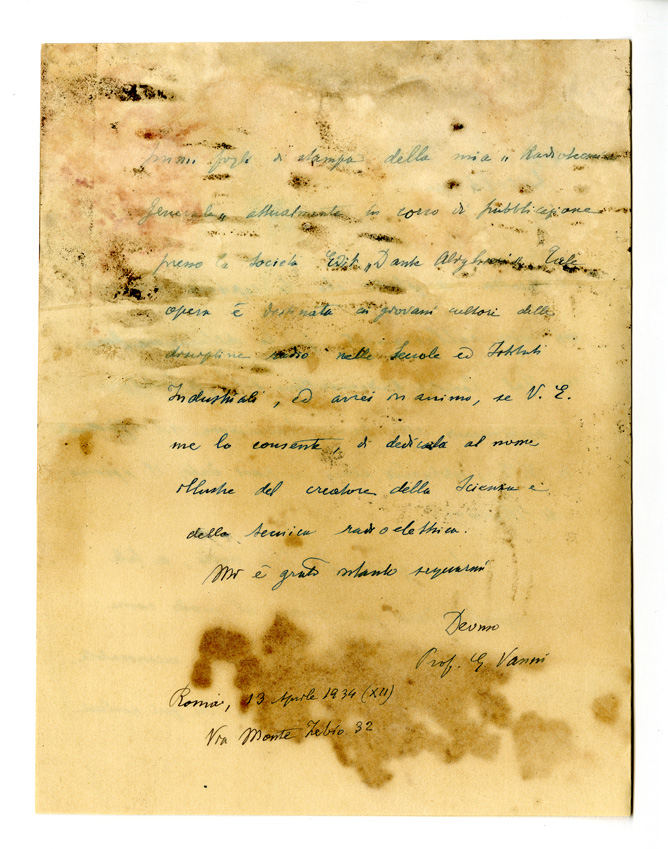 primi fogli di stampa della mia „ Radiotecnica
Generale „ attualmente in corso di pubblicazione
presso la Società Edit. „ Dante Alighieri „. Tale
opera è destinata ai giovani cultori delle
discipline radio nelle Scuole ed Istituti
Industriali, ed avrei in animo, se V. E.
me lo consente, di dedicarla al nome
illustre del creatore della Scienza e
della tecnica radioelettrica.
Mi è grato intanto segnarmi
Devmo
Prof. G. Vanni
Roma, 13 Aprile 1934 (XII)
Via Monte Zebio 32